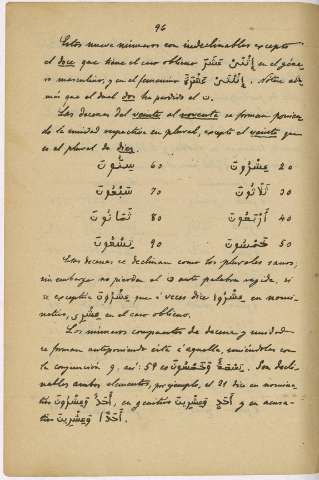 96
Estos nueve números son indeclinables excepto
el doce que tiene el caso oblicuo إِثْنَيْ عَشَرَ en el géne-
ro masculino, y en el femenino إِثْنَتَيْ عَشْرَةَ. Nótese ade-
más que el dual dos ha perdido el ن.
Las decenas del veinte al noventa se forman ponien-
do la unidad respectiva en plural, excepto el veinte que
es el plural de diez.
20 عِشْرُونَ 60 سِتُّونَ
30 ثَلَاثُونَ 70 سَبْعُونَ
40 أَرْبَعُونَ 80 ثَمَانُونَ
50 خَمْسُونَ 90 تِسْعُونَ
Estas decenas se declinan como los plurales sanos,
sin embargo no pierden el ن ante palabra regida, si
se exceptúa عِشْرُونَ que á veces dice عِشْرُو en nomi-
nativo, عِشْرِي en el caso oblicuo.
Los números compuestos de decena y unidad
se forman anteponiendo ésta á aquella, uniéndolas con
la conjunción و, así: 59 es تِسْعَةٌ وَخَمْسُونَ. Son decli-
nables ambos elementos, por ejemplo, el 21 dice en nomina-
tivo أَحَدٌ وَعِشْرُونَ, en genitivo أَحَدٍ وَعِشْرِينَ y en acusa-
tivo أَحَدًا وَعِشْرِينَ.